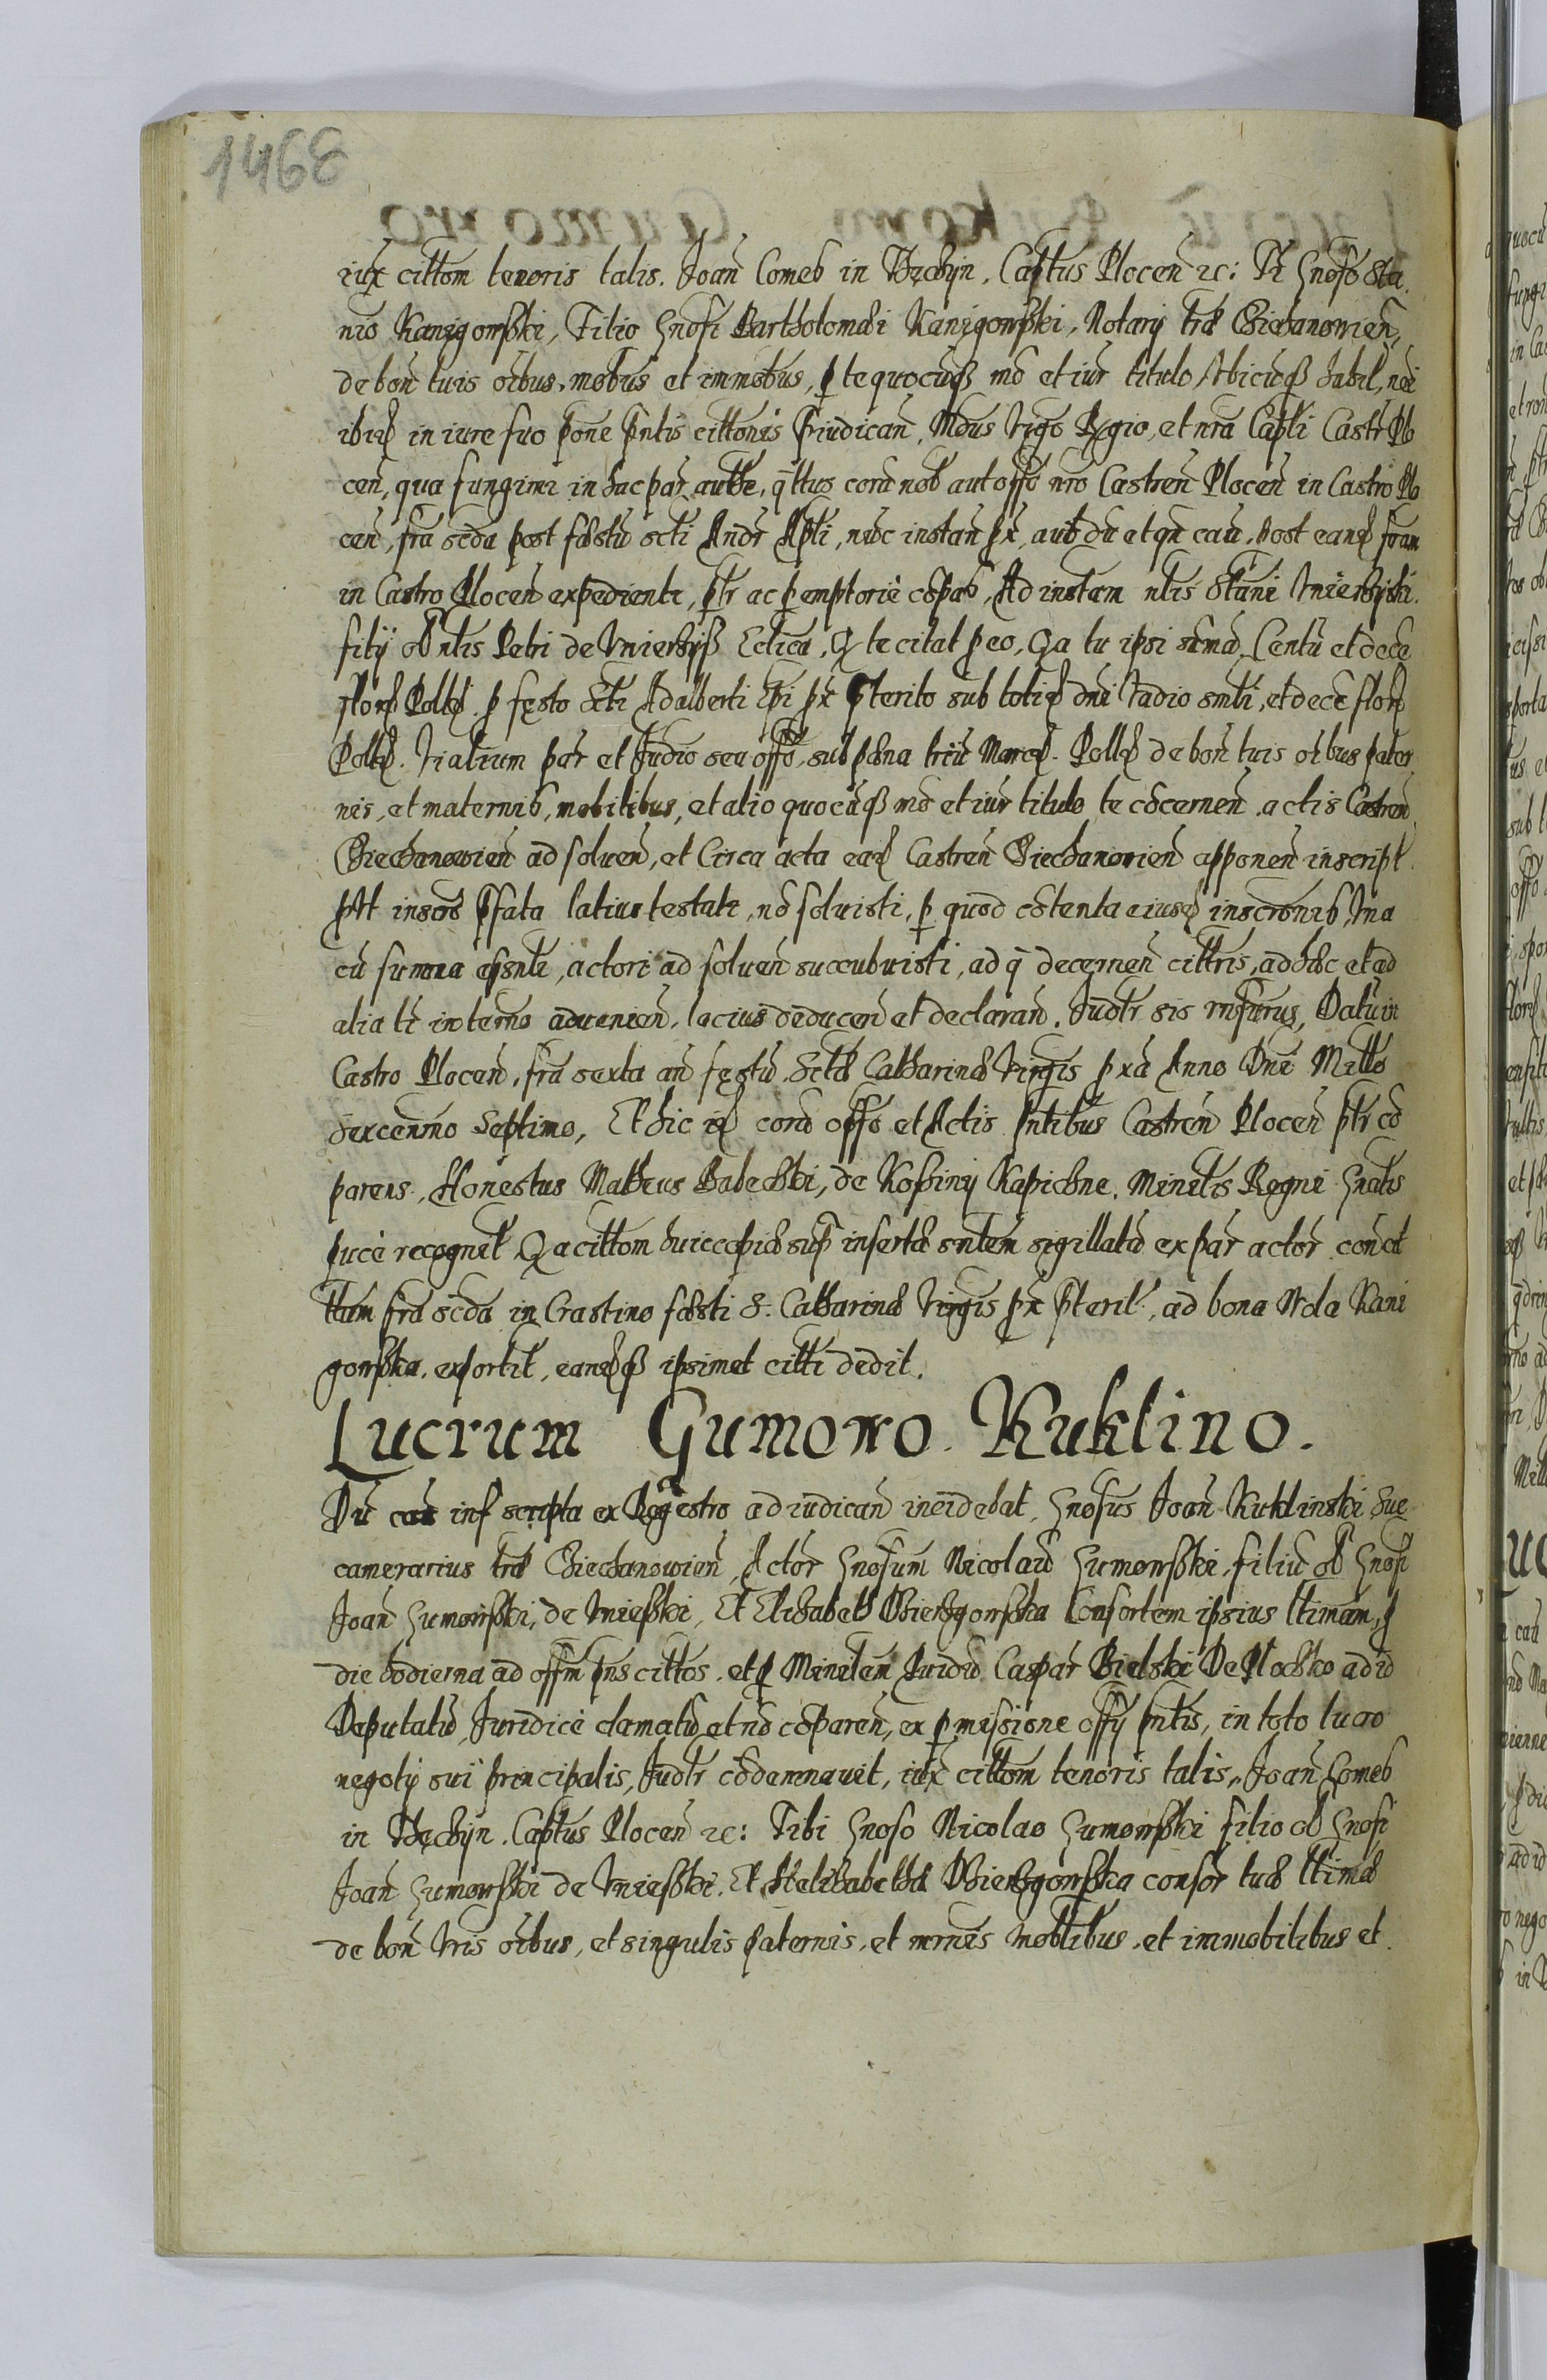 1468
iux cittom tenoris talis. Joan Comes in Thechyn. Captus Plocen zc: Tr Gnoso Sta
nio Kanigowski, Filio Gnosi Bartholomæi Kanigowski, Notary træ Ciechanowien,
de bon tuis oibus, mobus et immobus, p te quocuqß mo et iur titulo, Ubicuqß habit, nei
ibiq in iure suo pone pntis cittonis Priudican, Mdus Vigo Regio, et nra Capli Castr Plo
cen, qua fungimr in hac par autthe, qttus coru nob aut offo nro Castren Plocen in Castro Plo
cen, fra scda post fæstu scti Andr Apli, nuc instan px, aut du et qn cau, post eanq fram
in Castro Plocen expedientr, ptr ac pemptorie copas, Ad instam ntis Stani Vnierzyski,
filij ol ntis Petri de Vnierzyß Ectica, Q te citat peo, Qa tu ipsi suma Centu et dece
floreq Pollq. p festo Scti Adalberti Epi px pterito sub totiq dni Vadio smli, et dece floreq
Pollq. Vialium par et Judio seu offo, sub pæna triu Marcq. Pollq de bon tuis oibus pater
nis, et maternis, mobilibus, et alio quocuqß mo et iur titulo te cocernen actis Castren
Ciechanowien ad soluen, et Circa acta eaq Castren Ciechanowien apponen inscript
put inscro pfata latius testatr, no soluisti, p quod cotenta eiusq inscronis, Vna
cu summa epsntr, actori ad soluen succubuisti, ad q decernen cittris, ad hæc et ad
alia ti in termo aduenien, lacius deducen et declaran. Judtr sis rnsurus, Datu in
Castro Plocen, fra sexta an festu Sctæ Catharinæ Virgis pxa Anno Dni Mills
sexcenmo Septimo, Et hic iq coru offo et Actis pntibus Castren Plocen ptr co
parens, Honestus Matheus Babechki, de Kossiny Kapichne, Ministis Regni Gnalis
puce recognit Qa cittom huic copiæ sup insertæ sntem sigillatu ex par actor conct
ttam fra scda in Crastino fæsti S. Catharinæ Virgis px pterit, ad bona Wola Kani
gowska, exportit, eanqß ipsimet citti dedit.
Lucrum Gumowo. Kuklino.
Du cau inf scripta ex Regestro ad iudican incidebat, Gnosus Joan Kuklinski Suc
camerarius træ Ciechanowien, Actor Gnosum Nicolau Gumowski, filiu ol Gnosi
Joan Gumowski, de Vnieski, Et Elizabeth Obierzgowska Consortem ipsius ltimam, p
die hodierna ad offm pns cittos, et p Ministem Juridu Caspar Bielski De Plocko ad id
Deputatu, Juridice clamatu et no coparen, ex pmissione offy pntis, in toto lucro
negoty sui principalis, Judtr codemnauit, iux cittom tenoris talis, Joan Comes
in Thechyn. Captus Plocen zc: Tibi Gnoso Nicolao Gumowski filio ol Gnosi
Joan Gumowski de Vnieski. Et Helizabethæ Obierzgowska consor tuæ ltimæ
de bon Vris oibus, et singulis paternis, et mrnis moblibus, et immobilibus et